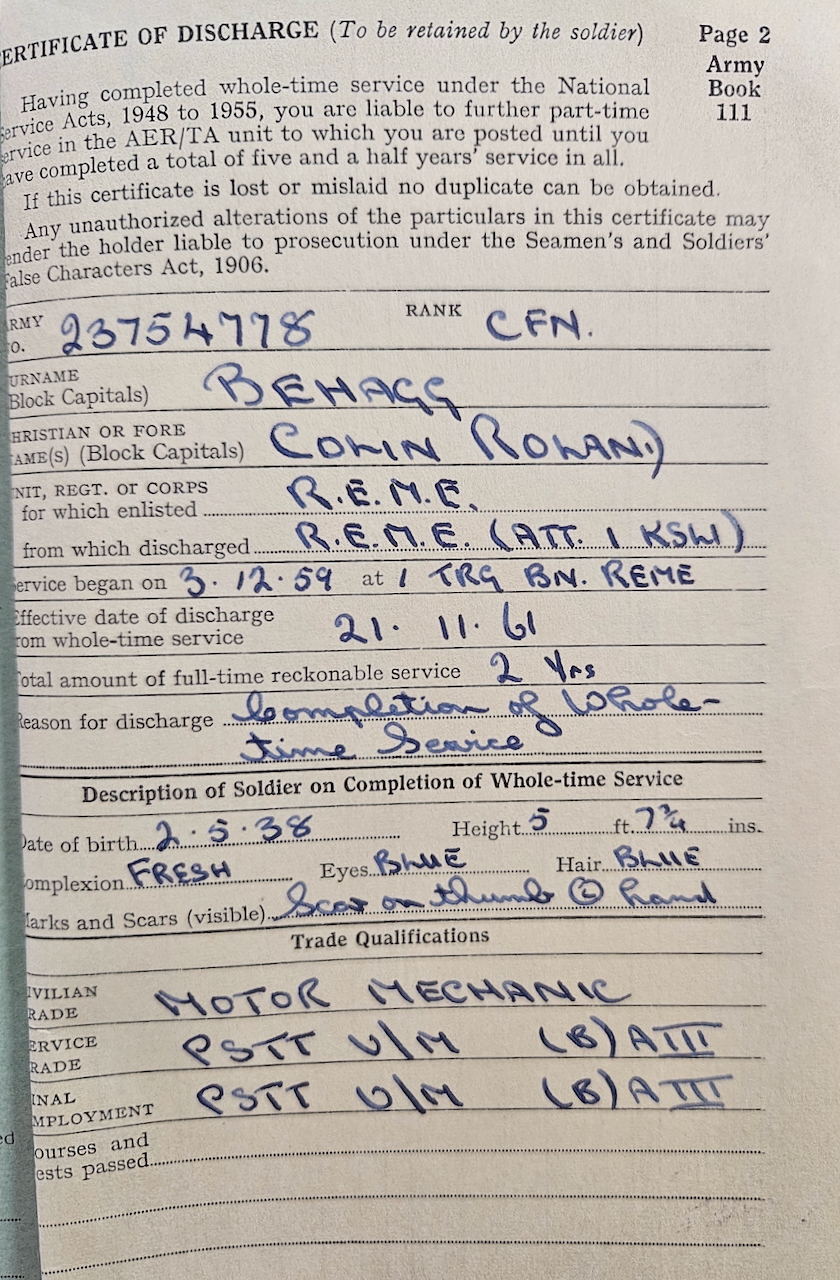 ERTIFICATE OF DISCHARGE (To be retained by the soldier)
Page 2
Army
Book
111
Having completed whole-time service under the National
ervice Acts, 1948 to 1955, you are liable to further part-time
ervice in the AER/TA unit to which you are posted until you
ave completed a total of five and a half years' service in all.
If this certificate is lost or mislaid no duplicate can be obtained.
Any unauthorized alterations of the particulars in this certificate may
ender the holder liable to prosecution under the Seamen's and Soldiers'
False Characters Act, 1906.
RMY
O. 23754778 RANK CFN.
URNAME
Block Capitals) BEHAGG
HRISTIAN OR FORE
AME(S) (Block Capitals) COLIN ROLAND
NIT, REGT. or CORPS
for which enlisted R.E.M.E.
from which discharged R.E.M.E. (ATT. 1 KSLI)
ervice began on 3.12.59 at 1 TRG BN. REME
Effective date of discharge
rom whole-time service 21. 11. 61
otal amount of full-time reckonable service 2 Yrs
Reason for discharge Completion of Whole-
time Service
Description of Soldier on Completion of Whole-time Service
Date of birth 2.5.38 Height 5 ft. 7¾ ins.
omplexion FRESH Eyes BLUE Hair BLUE
Marks and Scars (visible) Scar on thumb hand
Trade Qualifications
IVILIAN
RADE MOTOR MECHANIC
ERVICE
RADE PSTT V/M (B) AIII
INAL
MPLOYMENT PSTT V/M (B) AIII
ed
ourses and
ests passed